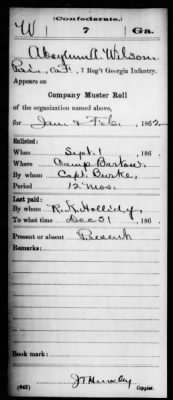 (Confederate.)
W 7 Ga.
Wilson
Pvt., Co. F, 7 Reg't Georgia Infantry.
Appears on
Company Muster Roll
of the organization named above,
for Jan & Feb, 1862
Enlisted:
When Sept. 1, 186 .
Where Camp Bartow.
By whom Capt. Burke,
Period 12 Mos.
Last paid:
By whom R. K. Holliday,
To what time Dec 31, 186 .
Present or absent Present
Remarks:
Book mark:
(642) Copyist.